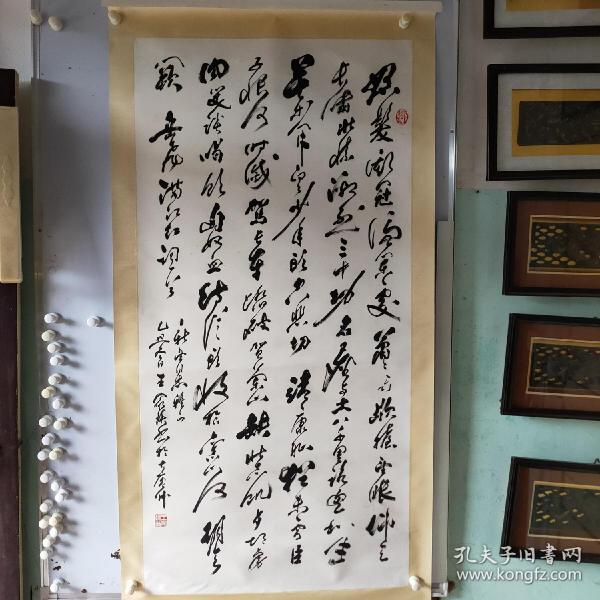 怒髮衝冠憑闌處蕭蕭雨歇抬望眼仰天
長嘯壯懷激烈三十功名塵與土八千里路雲和月
莫等閒白了少年頭空悲切靖康恥猶未雪臣
子恨何時滅駕長車踏破賀蘭山缺壯志飢餐胡虜
肉笑談渴飲匈奴血待從頭收拾舊山河朝天
闕 岳飛滿江紅詞一首
孔夫子旧书网
www.kongfz.com